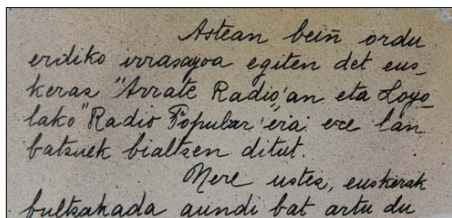 Astean beiñ ordu
erdiko irrasayoa egiten det eus-
keraz "Arrate Radio'an eta Loyo-
lako "Radio Popular"'era ere lan
batzuek bialtzen ditut.
Nere ustez, euskerak
bultzakada aundi bat artu du